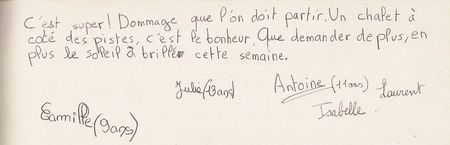 C'est super! Dommage que l'on doit partir. Un chalet à
coté des pistes, c'est le bonheur. Que demander de plus, en
plus le soleil à briller cette semaine.
Julie (13ans) Antoine (11ans) Laurent
Isabelle
Camille (9ans)